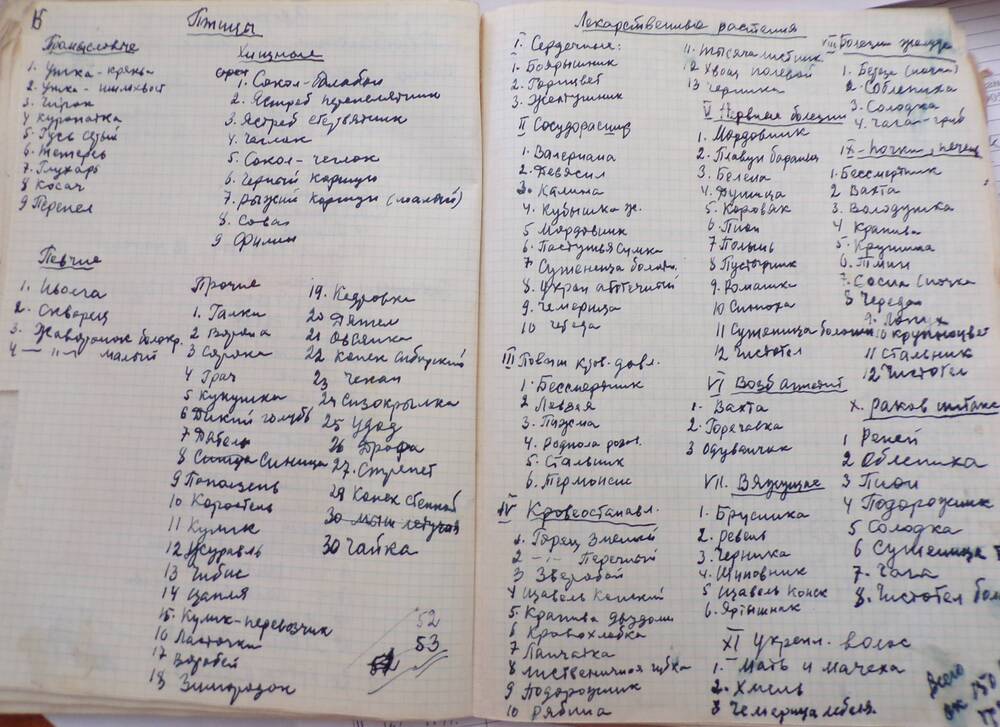 Птицы
Промысловые
1. Утка - кряква
2. Утка - шилохвост
3. Чирок
4 Куропатка
5. Гусь серый
6. Тетерев
7. Глухарь
8 Косач
9 Перепел
Певчие
1. Иволга
2. Скворец
3. Жаворонок
4 — 11 — малый
Хищные
1. Сокол - балобан
2. Ястреб перепелятник
3. Ястреб стервятник
4. Чеглок
5. Сокол - чеглок
6. Черный Коршун
7. Рыжий Коршун (малый)
8. Сова
9 Филин
Прочие
1. Галка
2 Ворона
3 Сорока
4 Грач
5 Кукушка
6 Дикий голубь
7 Дятел
8 Синица
9 Поползень
10 Коростель
11 Кулик
12 Журавль
13 Чибис
14 Цапля
15. Кулик - перевозчик
16 Ласточка
17 Воробей
18 Зимородок
19. Кедровка
20 Дятел
21 Овсянка
22 Конек Сибирский
23 Чекан
24 Сизокрылка
25 Удод
26 Дрофа
27. Стрепет
29 Конек степной
30 мышь летучая
30 Чайка
52
53
Лекарственные растения
I. Сердечные:
1. Боярышник
2. Горицвет
3. Желтушник
II Сосудорасшир
1. Валериана
2. Девясил
3. Калина
4. Кубышка ж.
5 Мордовник
6. Пастушья сумка
7. Сушеница болотн.
8. Укроп аптечный
9. Чемерица
10 Череда
III Повыш кров. давл.
1. Бессмертник
2 Левзея
3. Пижма
4. Родиола розов.
5. Стальник
6. Термопсис
IV Кровеостанавл.
1. Горец Змеиный
2 — 11 — Перечный
3 Зверобой
4 Щавель Конский
5. Крапива двудомн
6 Кровохлебка
7 Лапчатка
8 Лиственничная губка
9 Подорожник
10 Рябина
11. Тысячелистник
12 Хвощ полевой
13 Черника
V Нервные болезни
1. Мордовник
2. Плаун баранец
3. Белена
4. Душица
5. Коровяк
6. Пион
7 Полынь
8 Пустырник
9. Ромашка
10 Синюха
11 Сушеница болотн
12 Чистотел
VI Возб аппетит
1. Вахта
2. Горечавка
3 Одуванчик
VII. Вяжущие
1. Брусника
2. Ревень
3. Черника
4. Шиповник
5 Щавель Конск
6. Ятрышник
VIII Болезни желудка
1. Береза (почки)
2. Облепиха
3. Солодка
4. Чага - гриб
IX - почки, печень
1. Бессмертник
2 Вахта
3. Володушка
4 Крапива
5. Крушина
6. Тмин
7. Сосна (почки
8 Череда
9. Лопух
10 крупноцвет
11 Стальник
12 Чистотел
X. раков
1 Репей
2 Облепиха
3 Пион
4 Подорожник
5 Солодка
6 Сушеница
7. Чага
8. Чистотел
XI Укрепл. волос
1. Мать и мачеха
2. Хмель
3 Чемерица
Всего
ок 150